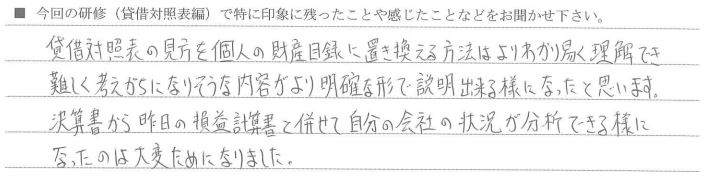 ■ 今回の研修（貸借対照表編）で特に印象に残ったことや感じたことなどをお聞かせ下さい。
貸借対照表の見方を個人の財産目録に置き換える方法はよりわかり易く理解でき
難しく考えがちになりそうな内容がより明確な形で説明出来る様になったと思います。
決算書から昨日の損益計算書と併せて自分の会社の状況が分析できる様に
なったのは大変ためになりました。